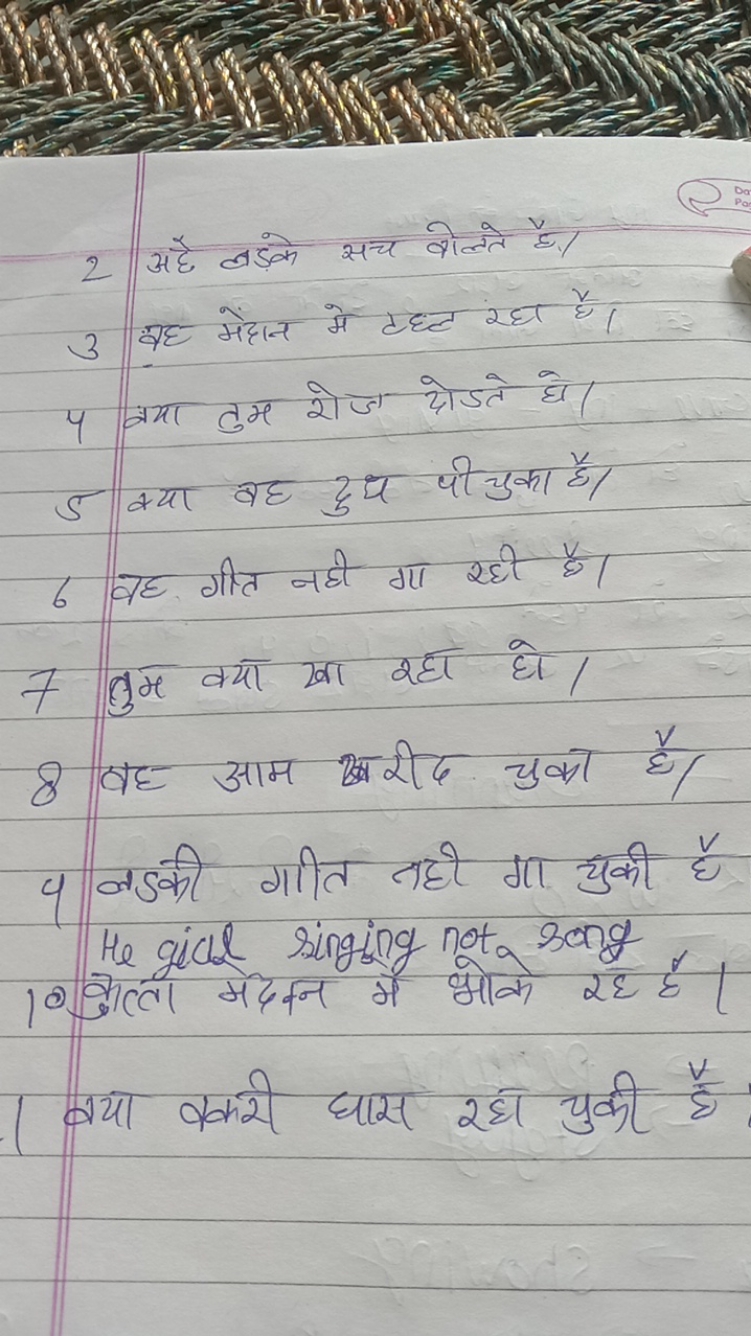 2 अहै लड़के सच बोलते है।
3 वह मेंदान मे टहल रहा है।
4 क्या तुम रोज दोडते थे।
5 क्या वह दुध पी चुका है।
6 वह गीत नही गा रही है।
7 तुम क्या खा रहा हो।
8 वह आम खरीद चुका है।
9 लडकी गाीत नही गा चुकी है
He girl singing not song
10 कुत्ता मेदान मे भोके रहे है।
1 क्या बकरी घास रहा चुकी है